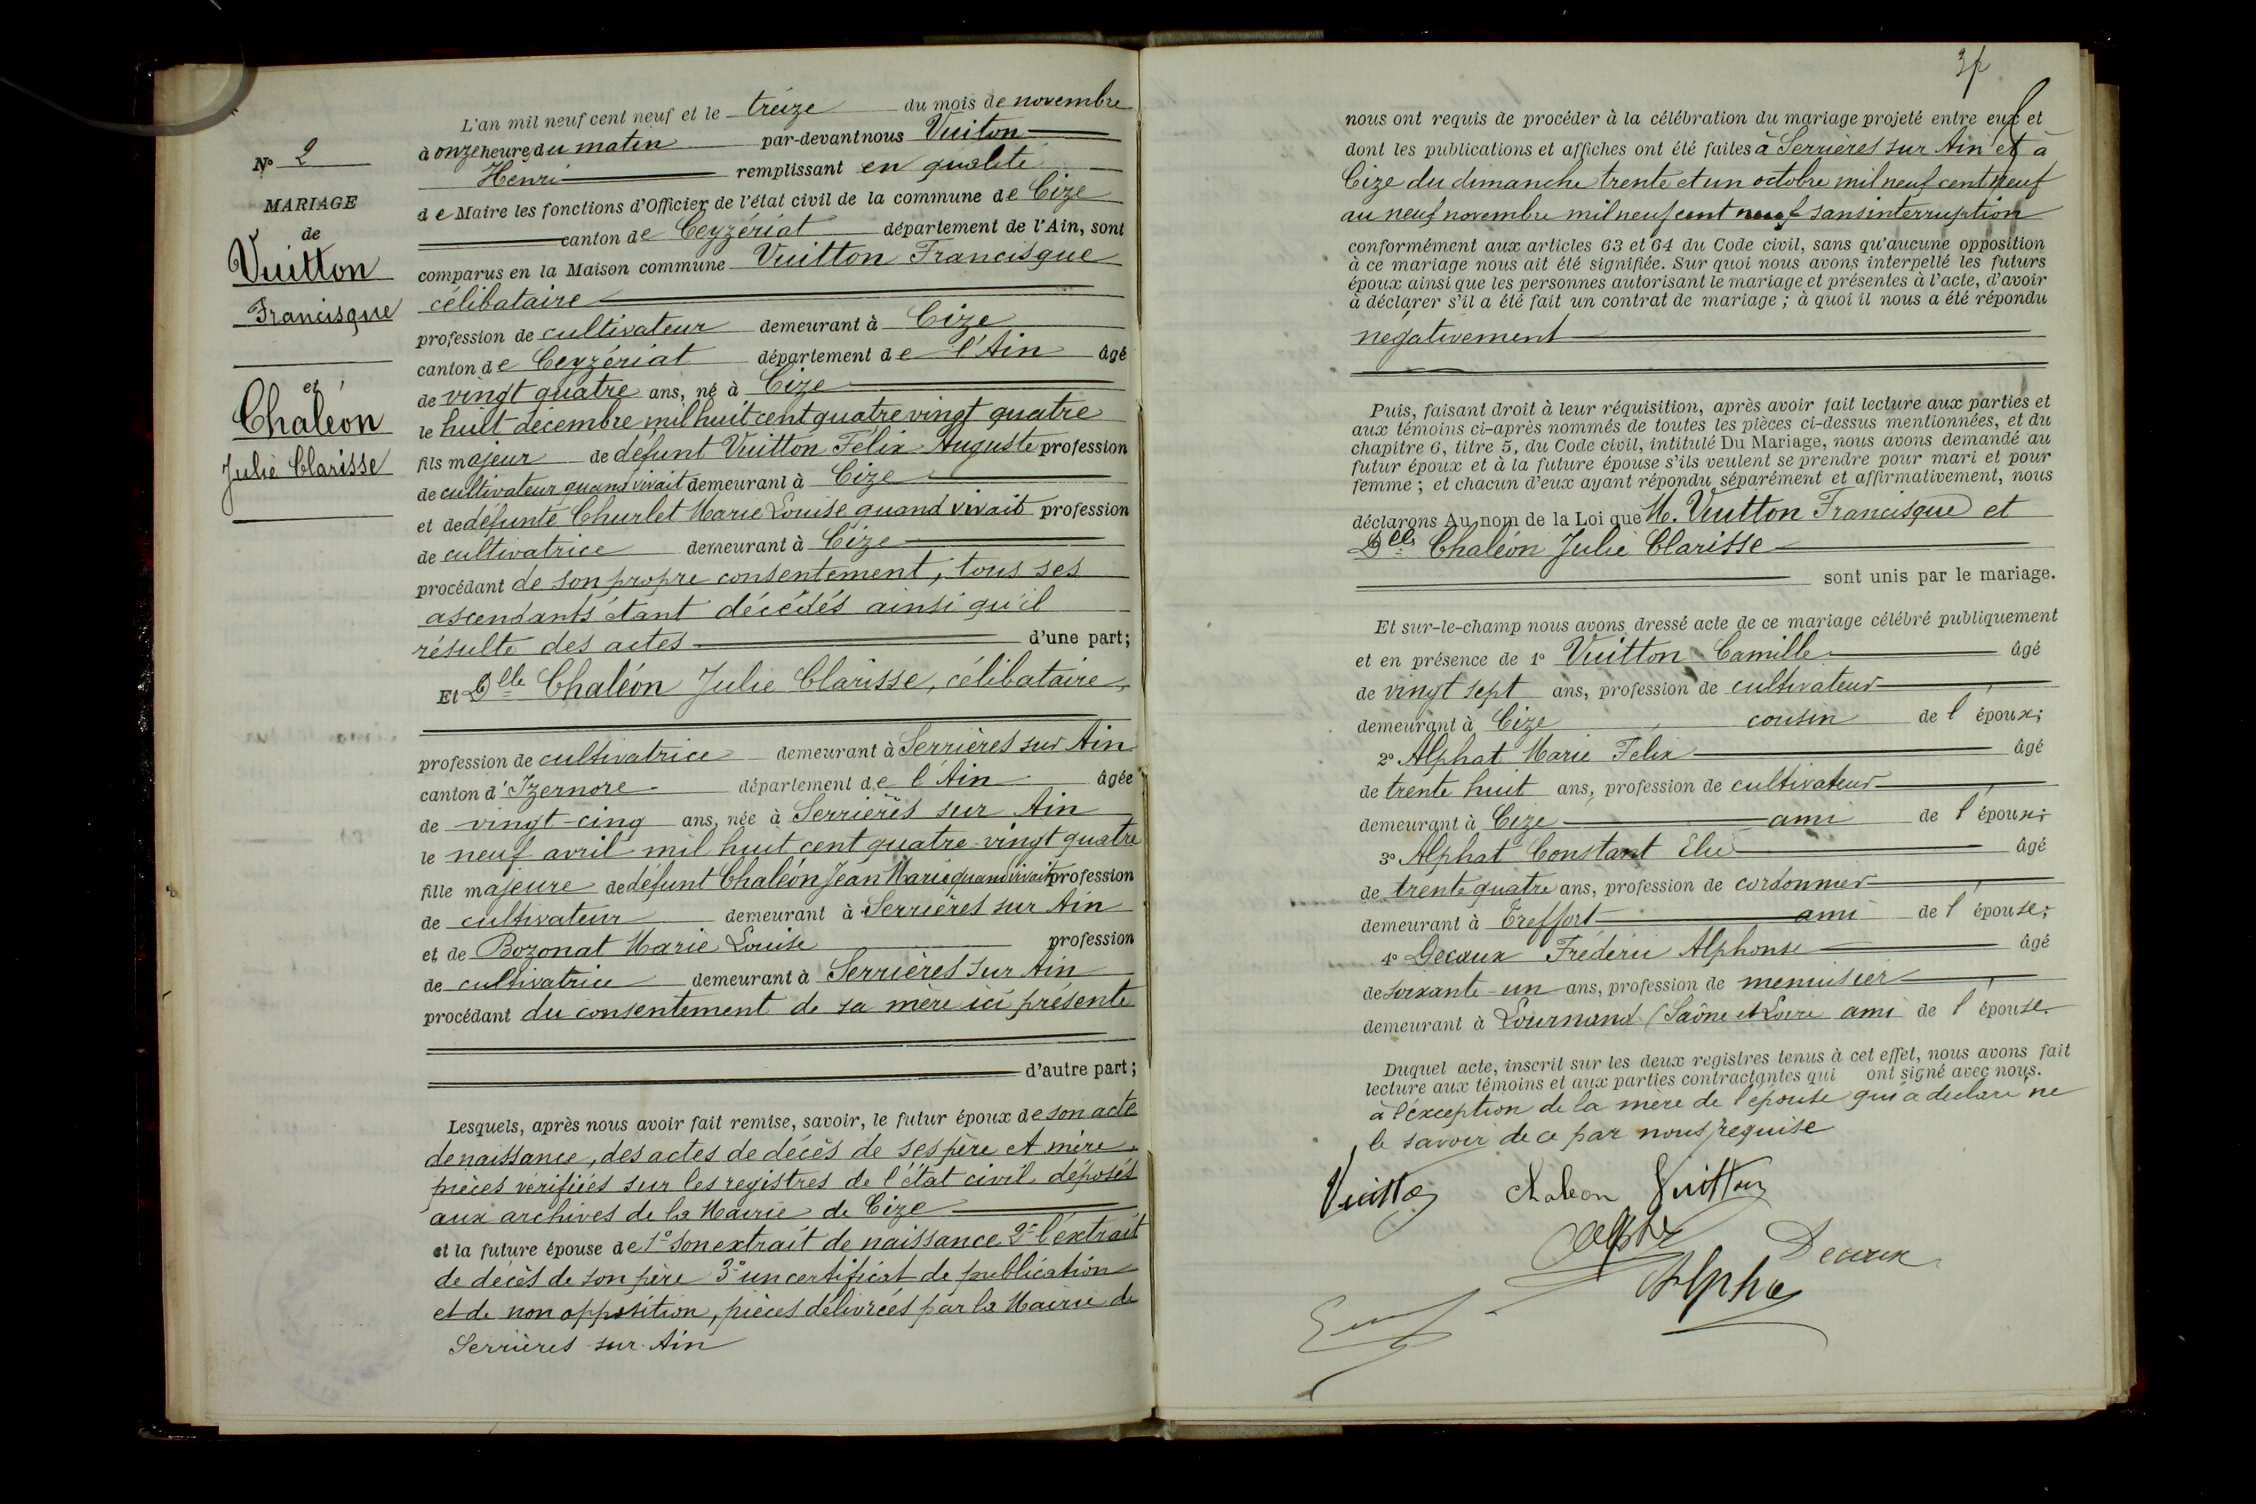 N° 2
MARIAGE
de
Vuitton
Francisque
et
Chaléon
Julie Clarisse
L'an mil neuf cent neuf et le treize du mois de novembre
à onze heures du matin par-devant nous Vuiton
Henri remplissant en qualité
de Maire les fonctions d'Officier de l'état civil de la commune de Cize
canton de Ceyzériat département de l'Ain, sont
comparus en la Maison commune Vuitton Francisque
célibataire
profession de cultivateur demeurant à Cize
canton de Ceyzériat département de l'Ain âgé
de vingt quatre ans, né à Cize
le huit décembre mil huit cent quatre vingt quatre
fils majeur de défunt Vuitton Félix Auguste profession
de cultivateur quand vivait demeurant à Cize
et de défunte Churlet Marie Louise quand vivait profession
de cultivatrice demeurant à Cize
procédant de son propre consentement, tous ses
ascendants étant décédés ainsi qu'il
résulte des actes d'une part;
Et Dlle Chaléon Julie Clarisse, célibataire,
profession de cultivatrice demeurant à Serrières sur Ain
canton d'Izernore département de l'Ain âgée
de vingt-cinq ans, née à Serrières sur Ain
le neuf avril mil huit cent quatre-vingt quatre
fille majeure de défunt Chaléon Jean Marie quand vivait profession
de cultivateur demeurant à Serrières sur Ain
et de Bozonat Marie Louise profession
de cultivatrice demeurant à Serrières sur Ain
procédant du consentement de sa mère ici présente
d'autre part;
Lesquels, après nous avoir fait remise, savoir, le futur époux de son acte
de naissance, des actes de décès de ses père et mère
pièces vérifiées sur les registres de l'état civil déposés
aux archives de la Mairie de Cize
et la future épouse de 1° son extrait de naissance 2° l'extrait
de décès de son père 3° un certificat de publication
et de non opposition, pièces délivrées par la Mairie de
Serrières sur Ain
nous ont requis de procéder à la célébration du mariage projeté entre eux et
dont les publications et affiches ont été faites à Serrières sur Ain et à
Cize du dimanche trente et un octobre mil neuf cent neuf
au neuf novembre mil neuf cent neuf sans interruption
conformément aux articles 63 et 64 du Code civil, sans qu'aucune opposition
à ce mariage nous ait été signifiée. Sur quoi nous avons interpellé les futurs
époux ainsi que les personnes autorisant le mariage et présentes à l'acte, d'avoir
à déclarer s'il a été fait un contrat de mariage; à quoi il nous a été répondu
négativement
Puis, faisant droit à leur réquisition, après avoir fait lecture aux parties et
aux témoins ci-après nommés de toutes les pièces ci-dessus mentionnées, et du
chapitre 6, titre 5, du Code civil, intitulé Du Mariage, nous avons demandé au
futur époux et à la future épouse s'ils veulent se prendre pour mari et pour
femme; et chacun d'eux ayant répondu séparément et affirmativement, nous
déclarons Au nom de la Loi que M. Vuitton Francisque et
Dlle Chaléon Julie Clarisse
sont unis par le mariage.
Et sur-le-champ nous avons dressé acte de ce mariage célébré publiquement
et en présence de 1° Vuitton Camille âgé
de vingt sept ans, profession de cultivateur
demeurant à Cize cousin de l'époux;
2° Alphat Marie Felix âgé
de trente huit ans, profession de cultivateur
demeurant à Cize ami de l'époux;
3° Alphat Constant Elie âgé
de trente quatre ans, profession de cordonnier
demeurant à Treffort ami de l'épouse;
4° Decaux Fréderic Alphonse âgé
de soixante-un ans, profession de menuisier
demeurant à Lournand (Saône et Loire ami de l'épouse.
Duquel acte, inscrit sur les deux registres tenus à cet effet, nous avons fait
lecture aux témoins et aux parties contractantes qui ont signé avec nous.
à l'exception de la mère de l'épouse qui a déclaré ne
le savoir de ce par nous requise
Vuitton Chaleon Vuitton
Decaux
Alphat